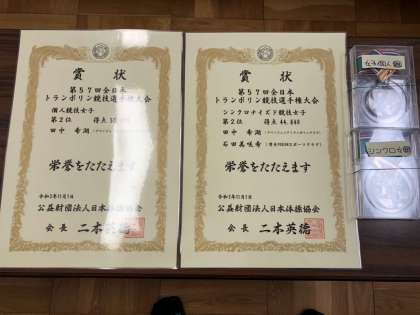 賞状
第57回全日本
トランポリン競技選手権大会
個人競技女子
第2位 得点
田中 希湖
栄誉をたたえます
公益財団法人日本体操協会
会長 二木英徳
賞状
第57回全日本
トランポリン競技選手権大会
シンクロナイズド競技女子
第2位 得点
田中 希湖
石田美咲希
栄誉をたたえます
公益財団法人日本体操協会
会長 二木英徳
女子個人
シンクロ